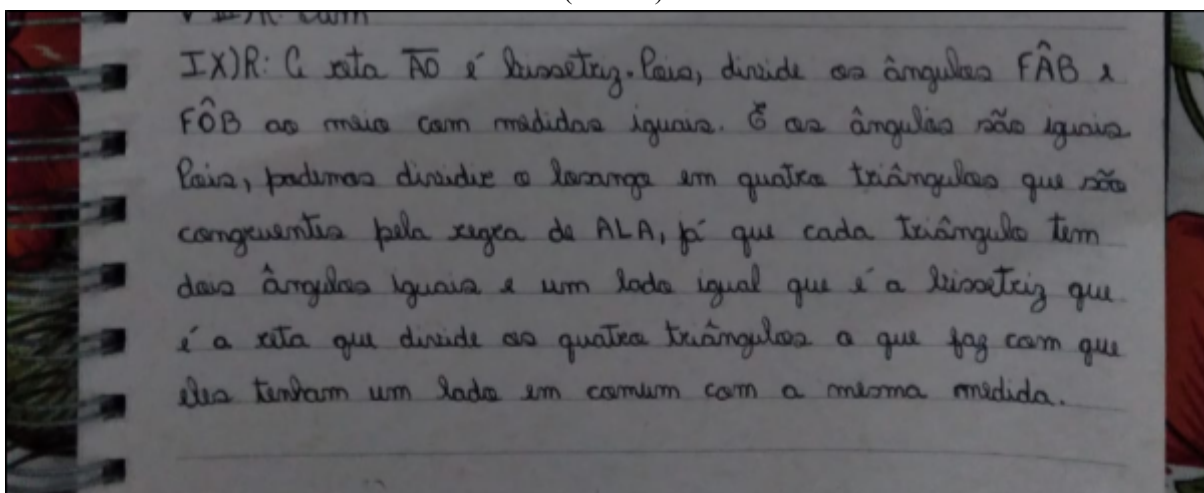 IX)R: A reta AO é bissetriz. Pois, divide os ângulos FÂB e
FÔB ao meio com medidas iguais. E os ângulos são iguais.
Pois, podemos dividir o losango em quatro triângulos que são
congruentes pela regra de ALA, já que cada triângulo tem
dois ângulos iguais e um lado igual que é a bissetriz que
é a reta que divide os quatro triângulos o que faz com que
eles tenham um lado em comum com a mesma medida.